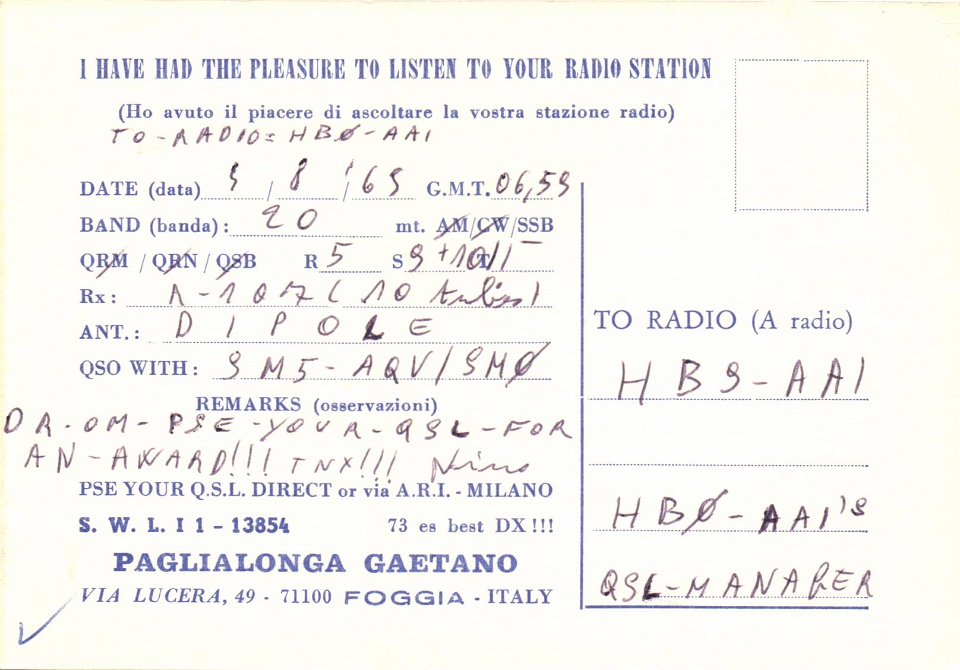 I HAVE HAD THE PLEASURE TO LISTEN TO YOUR RADIO STATION
(Ho avuto il piacere di ascoltare la vostra stazione radio)
TO-RADIO= HBØ-AAI
DATE (data) 9 / 8 / '69 G.M.T. 06,59
BAND (banda): 20 mt. AM/CW/SSB
QRM / QRN / QSB R 5 S 9+10
Rx: (10 tubes)
ANT.: DIPOLE
QSO WITH: SM5-AQV/SMØ
REMARKS (osservazioni)
DR-OM-PSE-YOUR-QSL-FOR
AN-AWARD!!! TNX!!! Nino
PSE YOUR Q.S.L. DIRECT or via A.R.I. - MILANO
S. W. L. I 1 - 13854 73 es best DX !!!
PAGLIALONGA GAETANO
VIA LUCERA, 49 - 71100 FOGGIA - ITALY
TO RADIO (A radio)
HB9-AAI
HBØ-AAI's
QSL-MANAGER